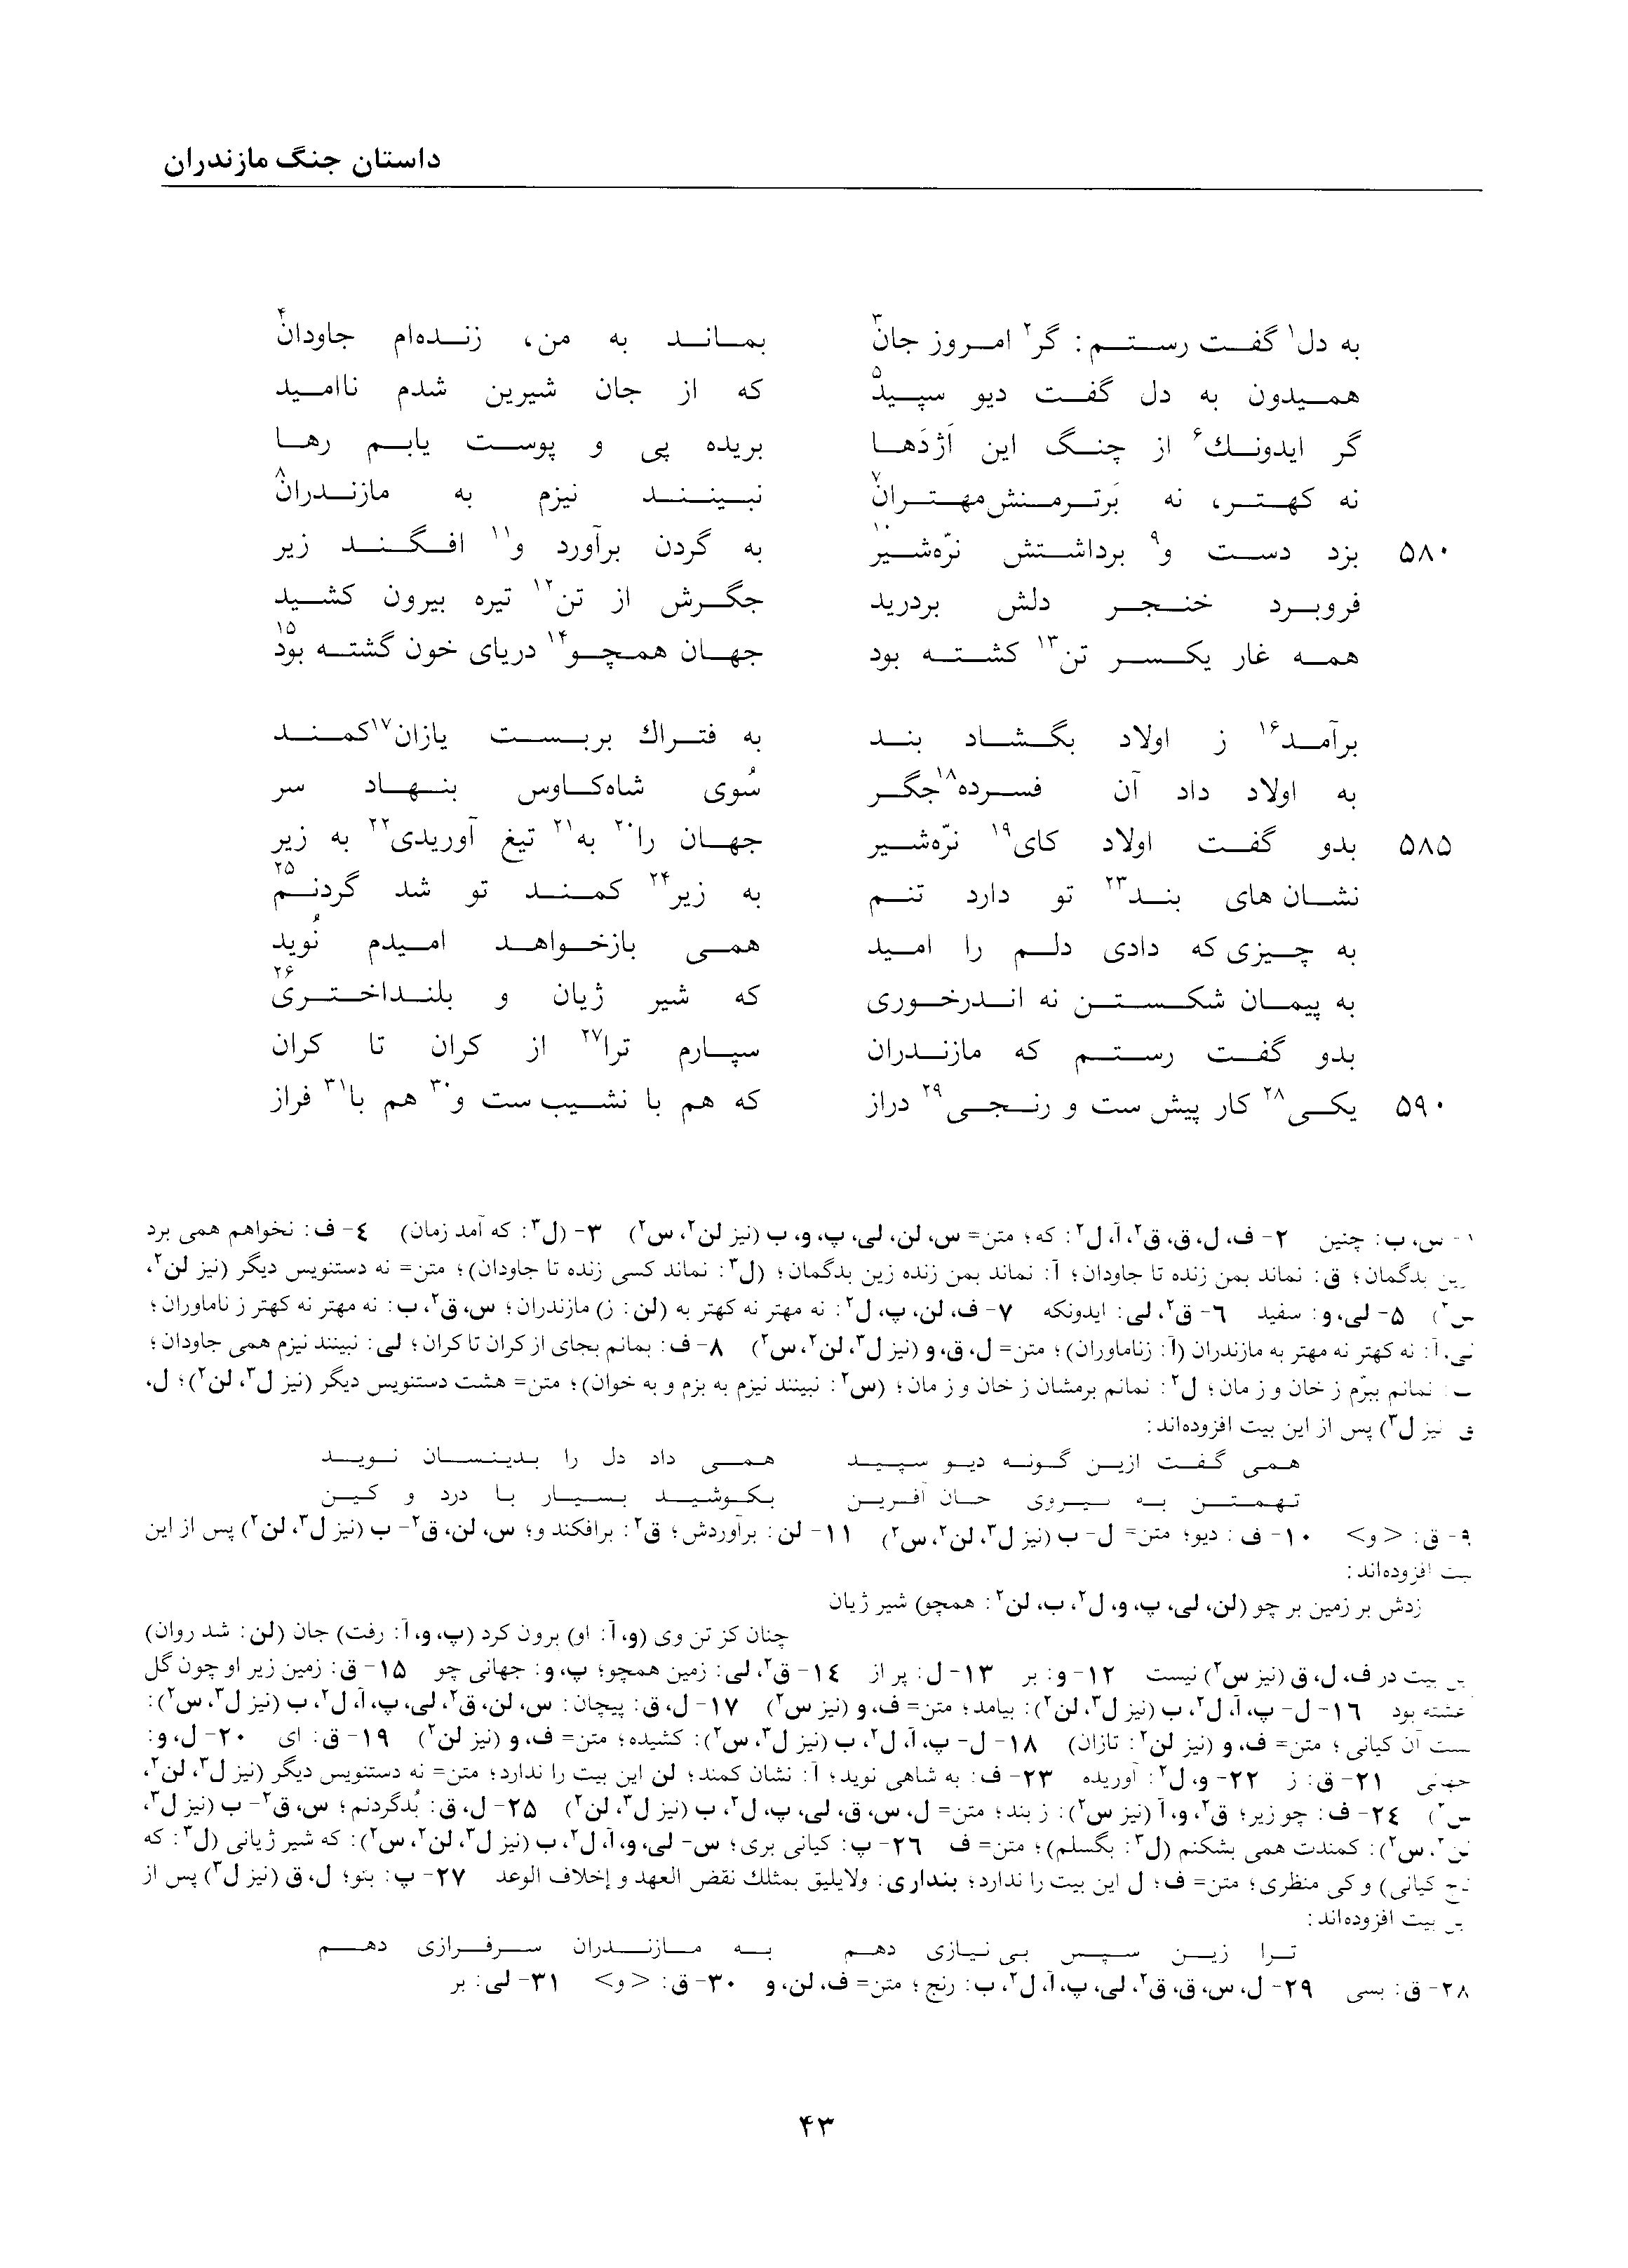 داستان جنگ مازندران
به دل۱ گفت رستم: گر۲ امروز جان۳ بماند به من، زنده‌ام جاودان۴
همیدون به دل گفت دیو سپید۵ که از جان شیرین شدم ناامید
گر ایدونك۶ از چنگ این اَژدَها بریده پی و پوست یابم رها
نه کهتر، نه بَرترمنش‌مهتران۷ نبینند نیزم به مازندران۸
۵۸۰ بزد دست و۹ برداشتش نرّه‌شیر۱۰ به گردن برآورد و۱۱ افگند زیر
فروبرد خنجر دلش بردرید جگرش از تن۱۲ تیره بیرون کشید
همه غار یکسر تن۱۳ کشته بود جهان همچو۱۴ دریای خون گشته بود۱۵
برآمد۱۶ ز اولاد بگشاد بند به فتراك بربست یازان۱۷ کمند
به اولاد داد آن فسرده۱۸ جگر سُوی شاه‌کاوس بنهاد سر
۵۸۵ بدو گفت اولاد کای۱۹ نرّه‌شیر جهان را۲۰ به۲۱ تیغ آوریدی۲۲ به زیر
نشان های بند۲۳ تو دارد تنم به زیر۲۴ کمند تو شد گردنم۲۵
به چیزی که دادی دلم را امید همی بازخواهد امیدم نُوید
به پیمان شکستن نه اندرخوری که شیر ژیان و بلنداختری۲۶
بدو گفت رستم که مازندران سپارم ترا۲۷ از کران تا کران
۵۹۰ یکی۲۸ کار پیش ست و رنجی۲۹ دراز که هم با نشیب ست و۳۰ هم با۳۱ فراز
۱- س، ب: چنین ۲- ف، ل، ق، ق۲، آ، ل۲: که؛ متن= س، لن، لی، پ، و، ب (نیز لن۲، س۲) ۳- (ل۳: که آمد زمان) ٤- ف: نخواهم همی برد
زین بدگمان؛ ق: نماند بمن زنده تا جاودان؛ آ: نماند بمن زنده زین بدگمان؛ (ل۳: نماند کسی زنده تا جاودان)؛ متن= نه دستنویس دیگر (نیز لن۲،
س۲) ۵- لی، و: سفید ٦- ق۲، لی: ایدونکه ۷- ف، لن، پ، ل۲: نه مهتر نه کهتر به (لن: ز) مازندران؛ س، ق۲، ب: نه مهتر نه کهتر ز ناماوران؛
لی، آ: نه کهتر نه مهتر به مازندران (آ: زناماوران)؛ متن= ل، ق، و (نیز ل۳، لن۲، س۲) ۸- ف: بمانم بجای از کران تا کران؛ لی: نبینند نیزم همی جاودان؛
ب: نمانم ببزّم ز خان و ز مان؛ ل۲: نمانم برمشان ز خان و ز مان؛ (س۲: نبینند نیزم به بزم و به خوان)؛ متن= هشت دستنویس دیگر (نیز ل۳، لن۲)؛ ل،
ق (نیز ل۳) پس از این بیت افزوده‌اند:
همی گفت ازین گونه دیو سپید همی داد دل را بدینسان نوید
تهمتن به نیروی جان آفرین بکوشید بسیار با درد و کین
۹- ق: <و> ۱۰- ف: دیو؛ متن= ل- ب (نیز ل۳، لن۲، س۲) ۱۱- لن: برآوردش؛ ق۲: برافکند و؛ س، لن، ق۲- ب (نیز ل۳، لن۲) پس از این
بیت افزوده‌اند:
زدش بر زمین بر چو (لن، لی، پ، و، ل۲، ب، لن۲: همچو) شیر ژیان
چنان کز تن وی (و، آ: او) برون کرد (پ، و، آ: رفت) جان (لن: شد روان)
این بیت در ف، ل، ق (نیز س۲) نیست ۱۲- و: بر ۱۳- ل: پر از ۱٤- ق۲، لی: زمین همچو؛ پ، و: جهانی چو ۱۵- ق: زمین زیر او چون گل
غشته بود ۱٦- ل- پ، آ، ل۲، ب (نیز ل۳، لن۲): بیامد؛ متن= ف، و (نیز س۲) ۱۷- ل، ق: پیچان: س، لن، ق۲، لی، پ، آ، ل۲، ب (نیز ل۳، س۲):
بست آن کیانی؛ متن= ف، و (نیز لن۲: تازان) ۱۸- ل- پ، آ، ل۲، ب (نیز ل۳، س۲): کشیده؛ متن= ف، و (نیز لن۲) ۱۹- ق: ای ۲۰- ل، و:
جهانی ۲۱- ق: ز ۲۲- و، ل۲: آوریده ۲۳- ف: به شاهی نوید؛ آ: نشان کمند؛ لن این بیت را ندارد؛ متن= نه دستنویس دیگر (نیز ل۳، لن۲،
س۲) ۲٤- ف: چو زیر؛ ق۲، و، آ (نیز س۲): ز بند؛ متن= ل، س، ق، لی، پ، ل۲، ب (نیز ل۳، لن۲) ۲۵- ل، ق: بُدگردنم؛ س، ق۲- ب (نیز ل۳،
لن۲، س۲): کمندت همی بشکنم (ل۳: بگسلم)؛ متن= ف ۲٦- پ: کیانی بری؛ س- لی، و، آ، ل۲، ب (نیز ل۳، لن۲، س۲): که شیر ژیانی (ل۳: که
تاج کیانی) و کی منظری؛ متن= ف؛ ل این بیت را ندارد؛ بنداری: ولایلیق بمثلك نقض العهد و إخلاف الوعد ۲۷- پ: بتو؛ ل، ق (نیز ل۳) پس از
این بیت افزوده‌اند:
ترا زین سپس بی نیازی دهم به مازندران سرفرازی دهم
۲۸- ق: بسی ۲۹- ل، س، ق، ق۲، لی، پ، آ، ل۲، ب: رنج؛ متن= ف، لن، و ۳۰- ق: <و> ۳۱- لی: بر
۴۳